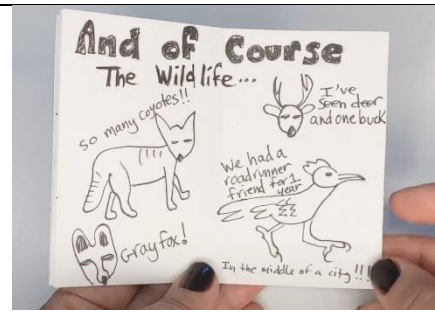 And of Course
The Wildlife...
so many coyotes!!
I've
seen deer
and one buck
We had a
roadrunner
friend for 1
year
Gray fox!
In the middle of a city!!!